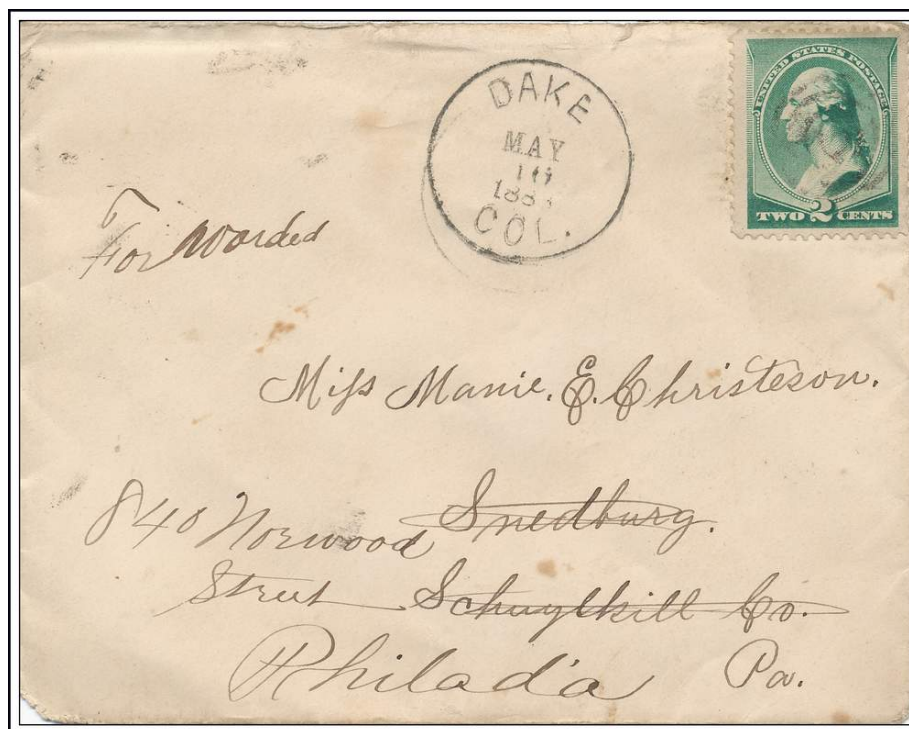 DAKE
MAY
10
188
COL.
UNITED STATES POSTAGE
TWO 2 CENTS
Forwarded
Miss Manie. E. Christeson.
840 Norwood Snedburg.
Street Schuylkill Co.
Philad'a Pa.